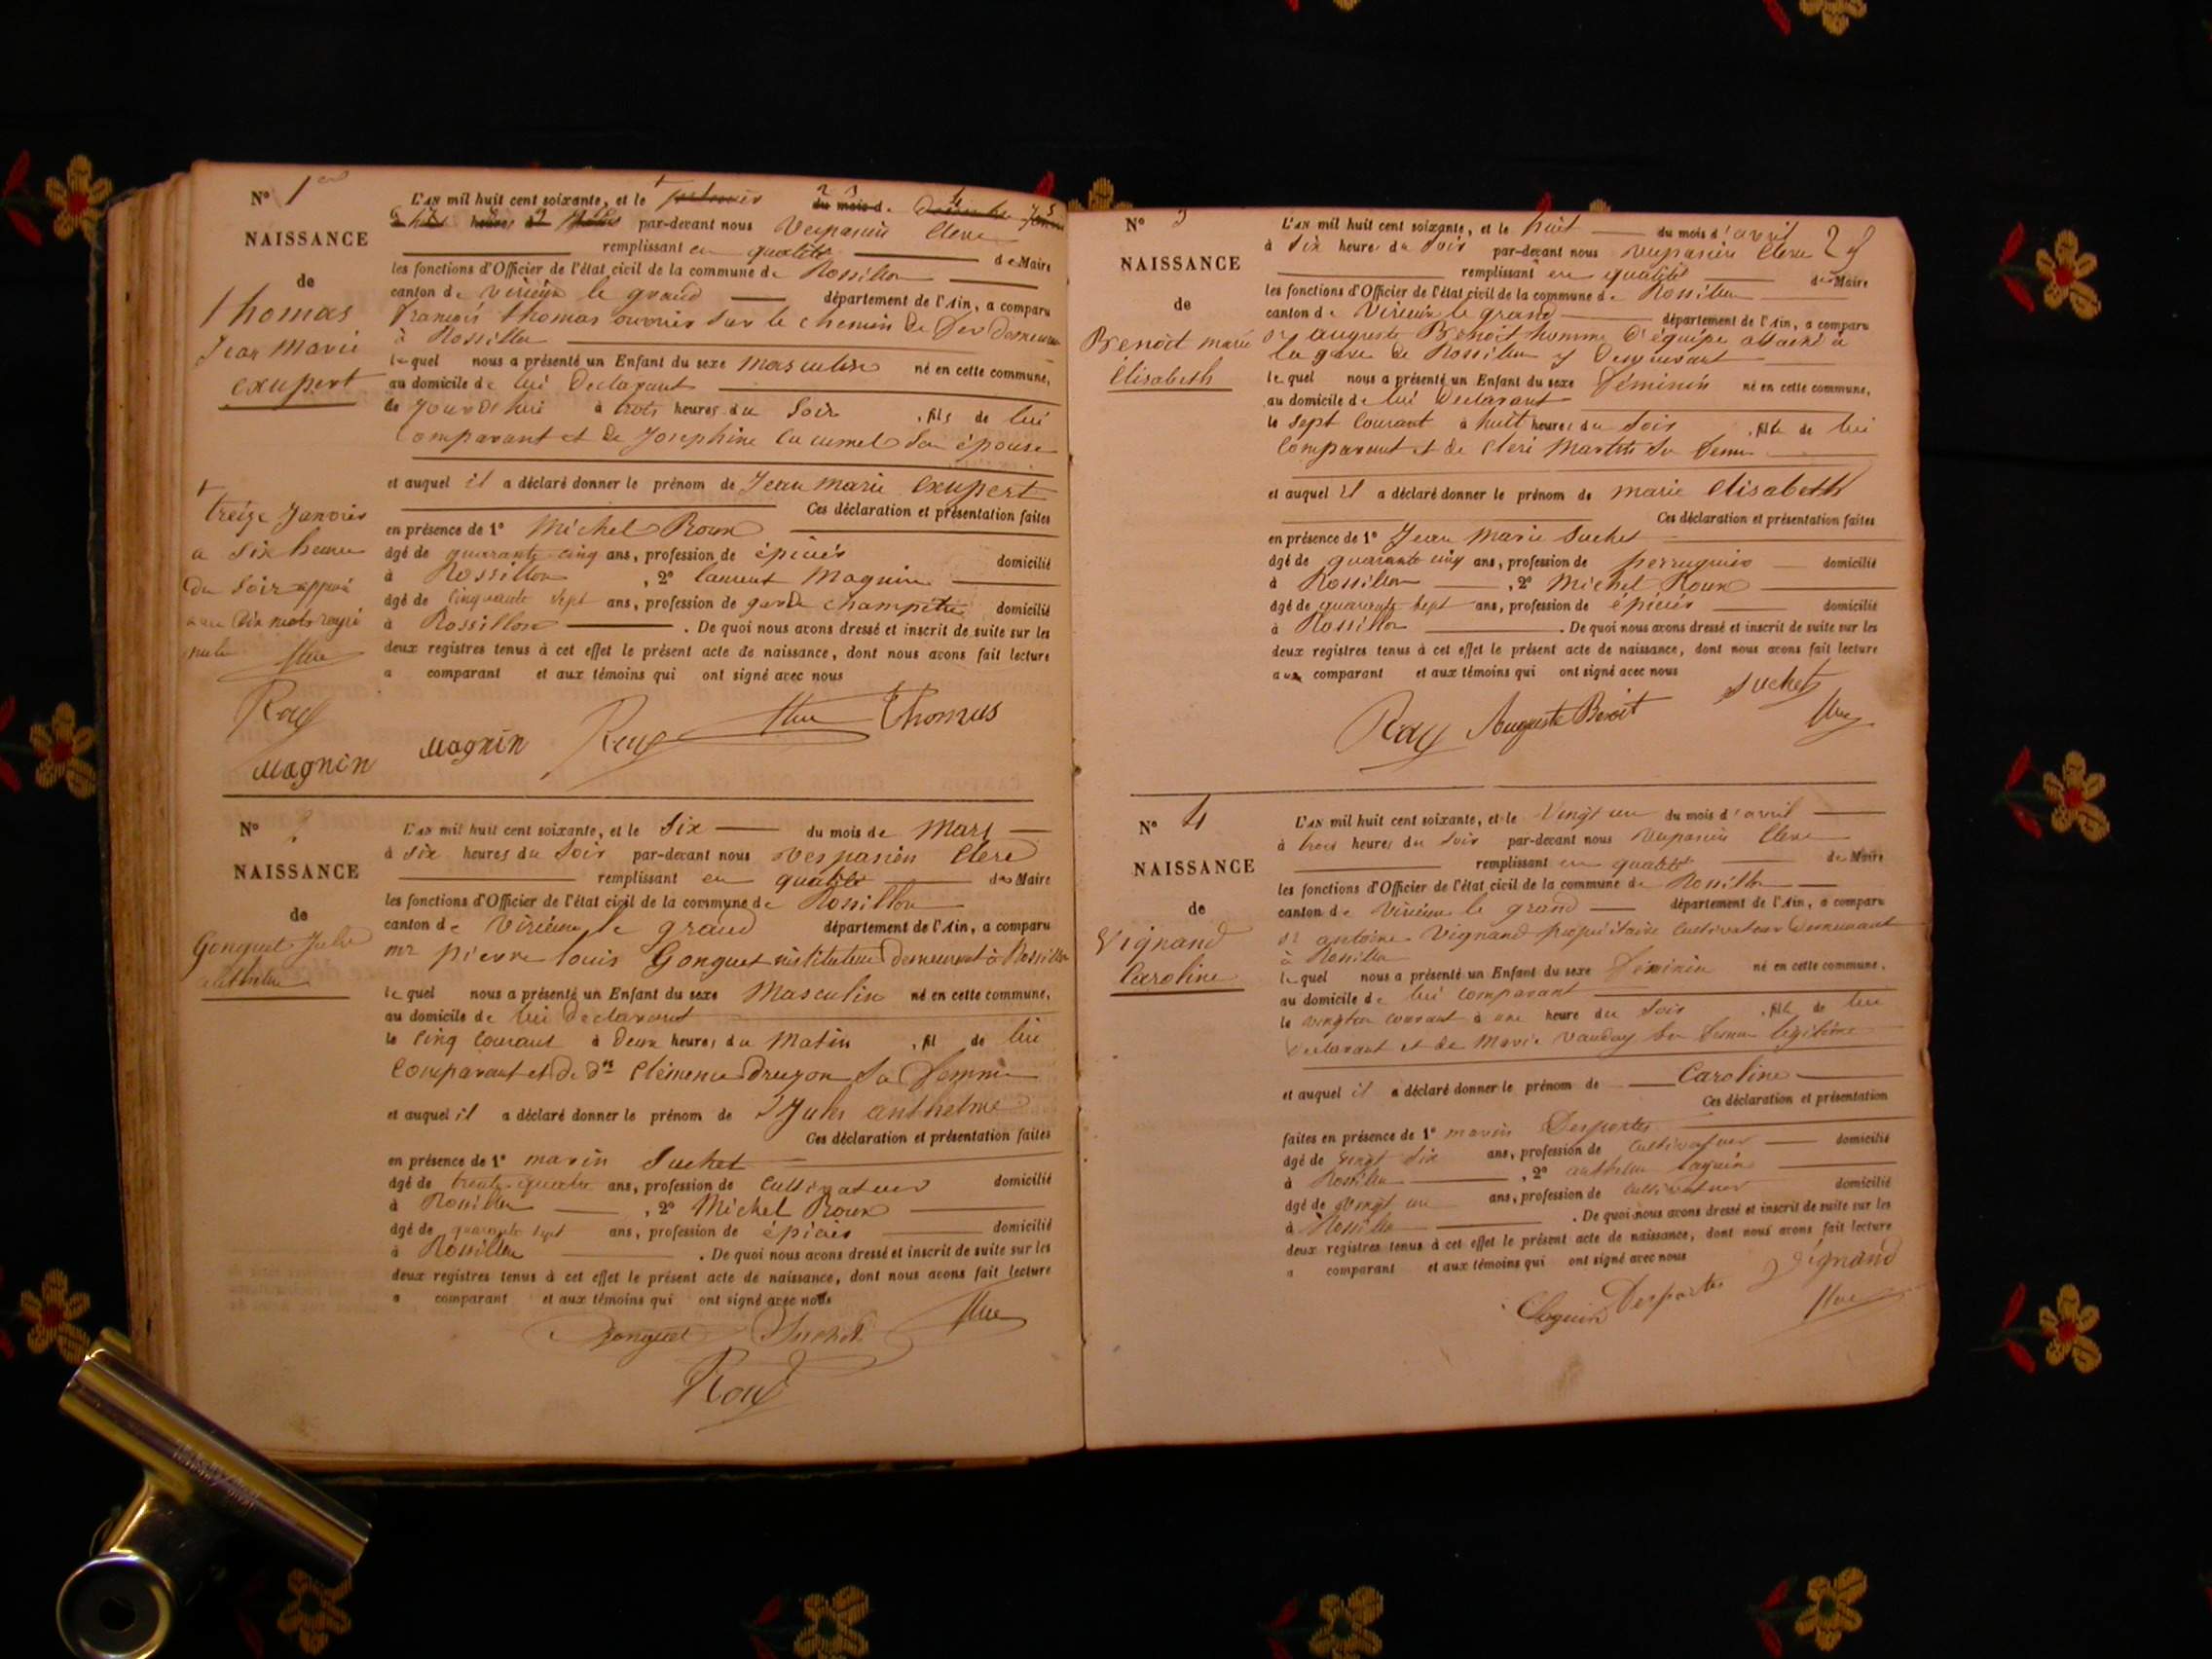 N° 1er
NAISSANCE
de
Thomas
Jean Marie
exupert
L'AN mil huit cent soixante, et le
du mois de
heures par-devant nous Vespasien Clerc
remplissant en qualité de Maire
les fonctions d'Officier de l'état civil de la commune de Rossillon
canton de virieux le grand département de l'Ain, a comparu
françois thomas ouvrier sur le chemin de fer demeurant
à Rossillon
lequel nous a présenté un Enfant du sexe masculin né en cette commune,
au domicile de lui Declarant
de jourdhui à trois heures du Soir , fils de lui
Comparant et de Josephine son épouse
et auquel il a déclaré donner le prénom de Jean marie exupert
Ces déclaration et présentation faites
en présence de 1° Michel Roux
âgé de quarante cinq ans, profession de épicier domicilié
à Rossillon , 2° laurent Magnin
âgé de cinquante sept ans, profession de garde champêtre domicilié
à Rossillon . De quoi nous avons dressé et inscrit de suite sur les
deux registres tenus à cet effet le présent acte de naissance, dont nous avons fait lecture
a comparant et aux témoins qui ont signé avec nous
treize Janvier
a six heures
du soir
dix mots rayé
nuls
Magnin
Magnin Thomas
N° 2
NAISSANCE
de
Gonguet Jules
anthelme
L'AN mil huit cent soixante, et le Six du mois de Mars
à six heures du Soir par-devant nous Vespasien Clerc
remplissant en qualité de Maire
les fonctions d'Officier de l'état civil de la commune de Rossillon
canton de Virieux le grand département de l'Ain, a comparu
mr pierre louis Gonguet instituteur demeurant à Rossillon
lequel nous a présenté un Enfant du sexe Masculin né en cette commune,
au domicile de lui declarant
le cinq courant à deux heures du Matin , fil de lui
Comparant et de dme Clémence Druzon Sa femme
et auquel il a déclaré donner le prénom de Jules anthelme
Ces déclaration et présentation faites
en présence de 1° marin Suchet
âgé de trente quatre ans, profession de Cultivateur domicilié
à Rossillon , 2° Michel Roux
âgé de quarante sept ans, profession de épicier domicilié
à Rossillon . De quoi nous avons dressé et inscrit de suite sur les
deux registres tenus à cet effet le présent acte de naissance, dont nous avons fait lecture
a comparant et aux témoins qui ont signé avec nous
Gonguet Suchet
Roux
N° 3
NAISSANCE
de
Benoit marie
Elisabeth
L'AN mil huit cent soixante, et le huit du mois d'avril
à six heure du soir par-devant nous vespasien Clerc
remplissant en qualité de Maire
les fonctions d'Officier de l'état civil de la commune de Rossillon
canton de Virieux le grand département de l'Ain, a comparu
sr auguste Benoit homme d'équipe attaché à
la gare de Rossillon y Demeurant
lequel nous a présenté un Enfant du sexe féminin né en cette commune,
au domicile de lui Declarant
le sept Courant à huit heures du Soir , fille de lui
Comparant et de Sa femme
et auquel il a déclaré donner le prénom de marie elisabeth
Ces déclaration et présentation faites
en présence de 1° Jean Marie Suchet
âgé de quarante cinq ans, profession de perruquier domicilié
à Rossillon , 2° Michel Roux
âgé de quarante sept ans, profession de épicier domicilié
à Rossillon . De quoi nous avons dressé et inscrit de suite sur les
deux registres tenus à cet effet le présent acte de naissance, dont nous avons fait lecture
aux comparant et aux témoins qui ont signé avec nous
Suchet
Auguste Benoit
N° 4
NAISSANCE
de
Vignand
Caroline
L'AN mil huit cent soixante, et le Vingt un du mois d'avril
à trois heures du Soir par-devant nous Vespasien Clerc
remplissant en qualité de Maire
les fonctions d'Officier de l'état civil de la commune de Rossillon
canton de Virieux le grand département de l'Ain, a comparu
sr antoine Vignand propriétaire cultivateur Demeurant
à Rossillon
lequel nous a présenté un Enfant du sexe féminin né en cette commune,
au domicile de lui comparant
le courant à une heure du Soir , fille de lui
declarant et de Marie Vauday Sa femme légitime
et auquel il a déclaré donner le prénom de Caroline
Ces déclaration et présentation
faites en présence de 1° marin Desportes
âgé de vingt six ans, profession de Cultivateur domicilié
à Rossillon , 2° anthelme
âgé de vingt un ans, profession de Cultivateur domicilié
à Rossillon . De quoi nous avons dressé et inscrit de suite sur les
deux registres tenus à cet effet le présent acte de naissance, dont nous avons fait lecture
a comparant et aux témoins qui ont signé avec nous
Desportes Vignand